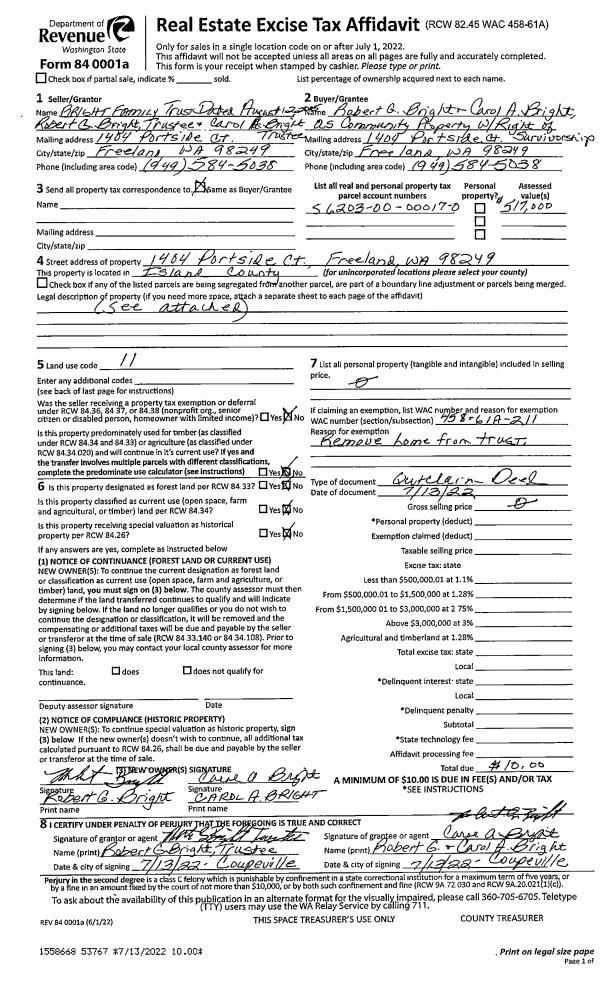 Department of
Revenue
Washington State
Form 84 0001a
Real Estate Excise Tax Affidavit (RCW 82.45 WAC 458-61A)
Only for sales in a single location code on or after July 1, 2022.
This affidavit will not be accepted unless all areas on all pages are fully and accurately completed.
This form is your receipt when stamped by cashier. Please type or print.
Check box if partial sale, indicate % sold. List percentage of ownership acquired next to each name.
1 Seller/Grantor
Name BRIGHT FAMILY Trust Dated August
Robert G. Bright, Trustee & Carol A. Bright Trustee
Mailing address 1404 Portside Ct.
City/state/zip Freeland WA 98249
Phone (including area code) (949) 584-5038
2 Buyer/Grantee
Name Robert G. Bright & Carol A. Bright,
as Community Property W/Right of Survivorship
Mailing address 1404 Portside Ct.
City/state/zip Freeland WA 98249
Phone (including area code) (949) 584-5038
3 Send all property tax correspondence to: Same as Buyer/Grantee
Name
Mailing address
City/state/zip
List all real and personal property tax parcel account numbers
Personal property?
Assessed value(s)
S6203-00-00017-0 517,000
4 Street address of property 1404 Portside Ct., Freeland, WA 98249
This property is located in Island County (for unincorporated locations please select your county)
Check box if any of the listed parcels are being segregated from another parcel, are part of a boundary line adjustment or parcels being merged.
Legal description of property (if you need more space, attach a separate sheet to each page of the affidavit)
(See attached)
5 Land use code 11
Enter any additional codes
(see back of last page for instructions)
Was the seller receiving a property tax exemption or deferral
under RCW 84.36, 84 37, or 84.38 (nonprofit org., senior
citizen or disabled person, homeowner with limited income)? Yes No
Is this property predominately used for timber (as classified
under RCW 84.34 and 84.33) or agriculture (as classified under
RCW 84.34 020) and will continue in it's current use? If yes and
the transfer involves multiple parcels with different classifications,
complete the predominate use calculator (see instructions) Yes No
6 Is this property designated as forest land per RCW 84 33? Yes No
Is this property classified as current use (open space, farm
and agricultural, or timber) land per RCW 84.34? Yes No
Is this property receiving special valuation as historical
property per RCW 84.26? Yes No
If any answers are yes, complete as instructed below
(1) NOTICE OF CONTINUANCE (FOREST LAND OR CURRENT USE)
NEW OWNER(S): To continue the current designation as forest land
or classification as current use (open space, farm and agriculture, or
timber) land, you must sign on (3) below. The county assessor must then
determine if the land transferred continues to qualify and will indicate
by signing below. If the land no longer qualifies or you do not wish to
continue the designation or classification, it will be removed and the
compensating or additional taxes will be due and payable by the seller
or transferor at the time of sale (RCW 84 33.140 or 84 34.108). Prior to
signing (3) below, you may contact your local county assessor for more
information.
This land: does does not qualify for
continuance.
Deputy assessor signature Date
(2) NOTICE OF COMPLIANCE (HISTORIC PROPERTY)
NEW OWNER(S): To continue special valuation as historic property, sign
(3) below. If the new owner(s) doesn't wish to continue, all additional tax
calculated pursuant to RCW 84.26, shall be due and payable by the seller
or transferor at the time of sale.
(3) NEW OWNER(S) SIGNATURE
Carol A Bright
Signature Signature
Robert G. Bright CAROL A. BRIGHT
Print name Print name
7 List all personal property (tangible and intangible) included in selling
price.
0
If claiming an exemption, list WAC number and reason for exemption
WAC number (section/subsection) 458-61A-211
Reason for exemption
Remove home from trust.
Type of document Quitclaim Deed
Date of document 7/13/22
Gross selling price 0
*Personal property (deduct)
Exemption claimed (deduct)
Taxable selling price
Excise tax: state
Less than $500,000.01 at 1.1%
From $500,000.01 to $1,500,000 at 1.28%
From $1,500,000 01 to $3,000,000 at 2 75%
Above $3,000,000 at 3%
Agricultural and timberland at 1.28%
Total excise tax: state
Local
*Delinquent interest· state
Local
*Delinquent penalty
Subtotal
*State technology fee
Affidavit processing fee
Total due $10.00
A MINIMUM OF $10.00 IS DUE IN FEE(S) AND/OR TAX
*SEE INSTRUCTIONS
8 I CERTIFY UNDER PENALTY OF PERJURY THAT THE FOREGOING IS TRUE AND CORRECT
Signature of grantor or agent Trustee
Name (print) Robert G Bright, Trustee
Date & city of signing 7/13/22 - Coupeville
Signature of grantee or agent Carol A Bright
Name (print) Robert G. & Carol A. Bright
Date & city of signing 7/13/22 - Coupeville
Perjury in the second degree is a class C felony which is punishable by confinement in a state correctional institution for a maximum term of five years, or
by a fine in an amount fixed by the court of not more than $10,000, or by both such confinement and fine (RCW 9A.72 030 and RCW 9A.20.021(1)(c)).
To ask about the availability of this publication in an alternate format for the visually impaired, please call 360-705-6705. Teletype
(TTY) users may use the WA Relay Service by calling 711.
REV 84 0001a (6/1/22) THIS SPACE TREASURER'S USE ONLY COUNTY TREASURER
1558668 53767 *7/13/2022 10.00*
Print on legal size pape
Page 1 of